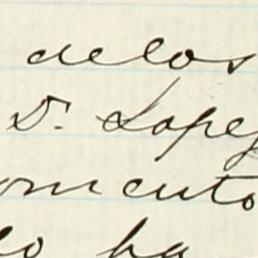 delos
Dr. Lopez
omento
lo ha